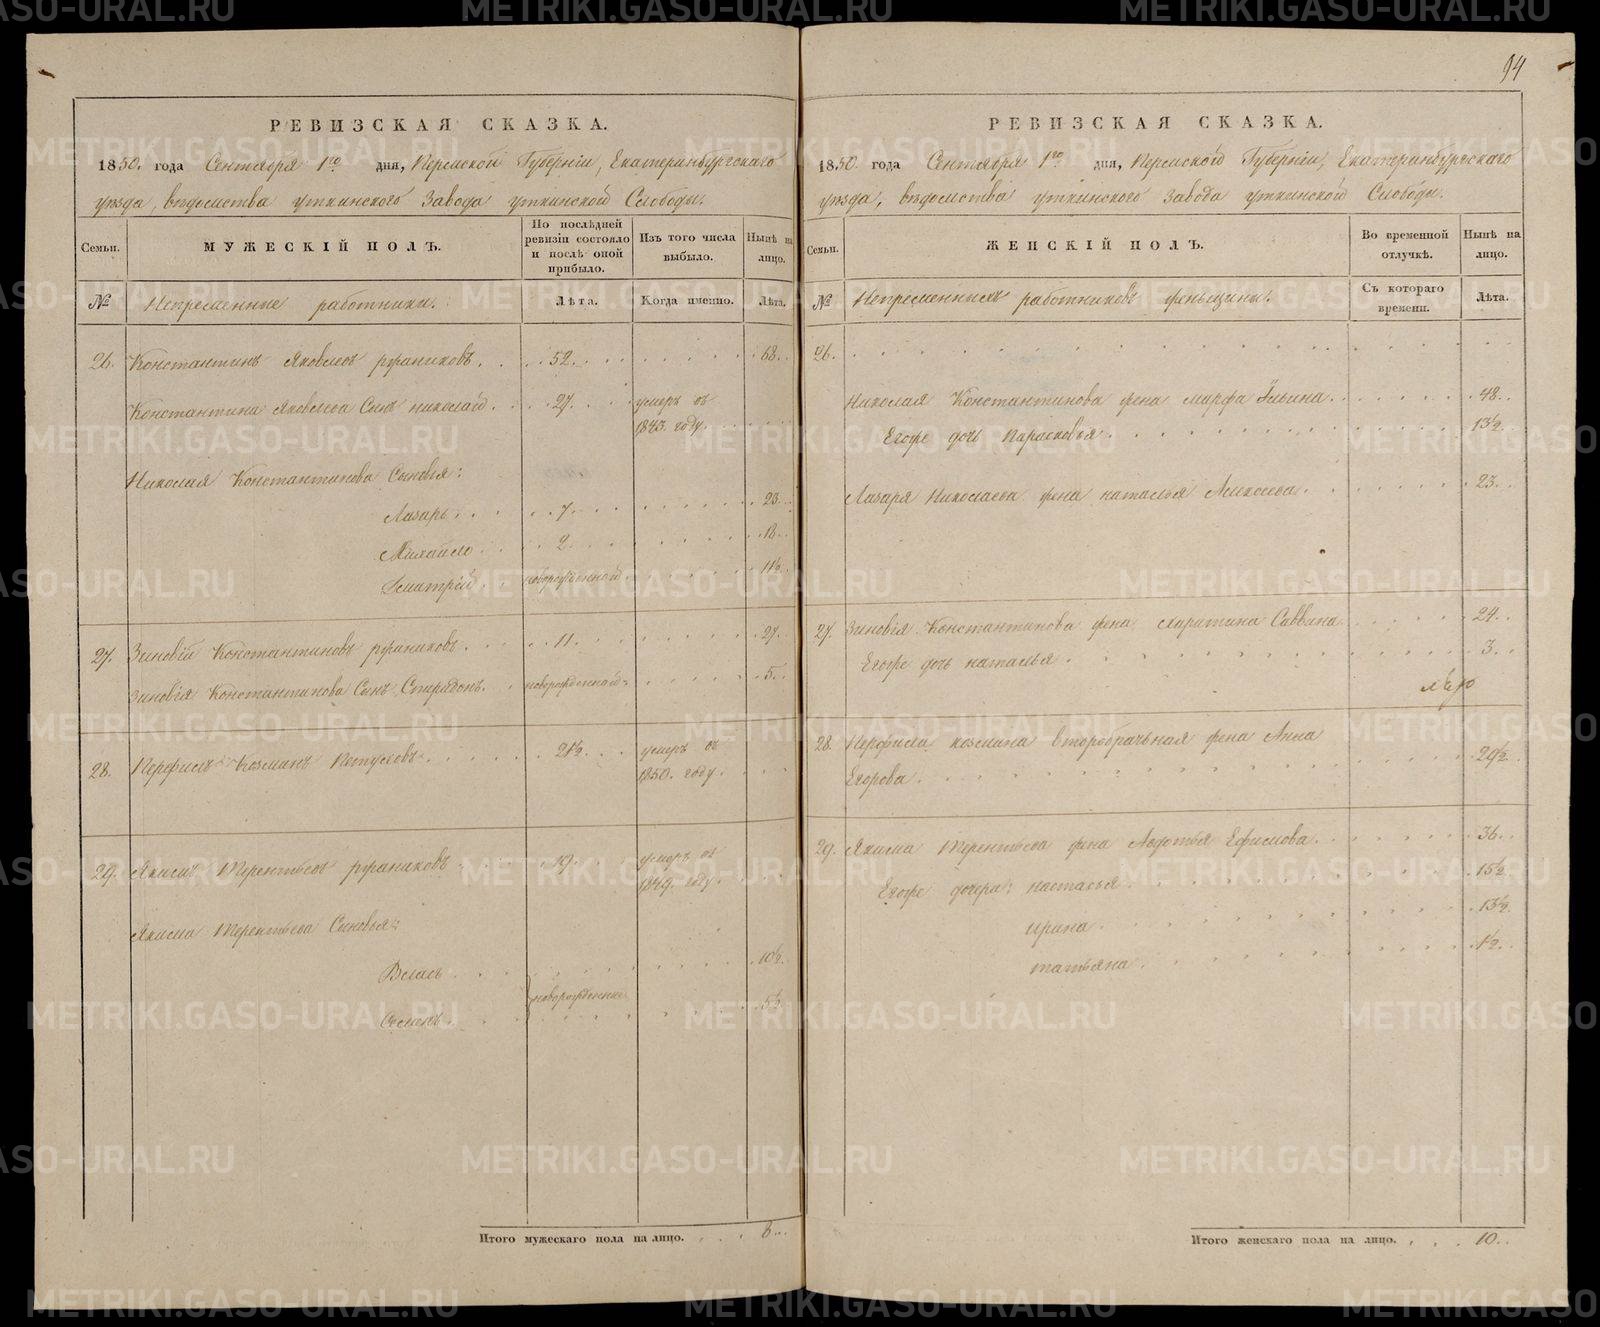 94
РЕВИЗСКАЯ СКАЗКА.
1850. года Сентября 1го дня, Пермской Губерніи, Екатеринбургскаго
уѣзда, вѣдомства уткинскаго Завода уткинской Слободы.
Семьи.
МУЖЕСКІЙ ПОЛЪ.
По послѣдней ревизіи состояло и послѣ оной прибыло.
Изъ того числа выбыло.
Нынѣ на лицо.
№
Непременные работники.
Лѣта.
Когда именно.
Лѣта.
26. Константинъ Яковлевъ 52. 68.
Константина Яковлева Сынъ николай. 27. умеръ въ
1843. году.
Николая Константинова Сыновья:
Лазарь. 7. 23.
Михайло 2. 18.
Дмитрей новорожденной 11½.
27. Зиновій Константиновъ 11. 27.
Зиновія Константинова Сынъ Спиридонъ. новорожденной 5.
28. Перфилъ Козминъ 21½. умеръ въ
1850. году.
29. Якимъ Терентьевъ 19. умеръ въ
1849. году.
Якима Терентьева Сыновья:
Власъ 10½.
новорожденные
5½.
Итого мужескаго пола на лицо. 8.
РЕВИЗСКАЯ СКАЗКА.
1850. года Сентября 1го дня, Пермской Губерніи, Екатеринбургскаго
уѣзда, вѣдомства уткинскаго Завода уткинской Слободы.
Семьи.
ЖЕНСКІЙ ПОЛЪ.
Во временной отлучкѣ.
Нынѣ на лицо.
№
Непременныхъ работниковъ женьщины.
Съ котораго времени.
Лѣта.
26.
Николая Константинова жена марфа Ильина. 48.
Егоже дочь Парасковья. 13½.
Лазаря Николаева жена наталья Алексеева. 23.
27. Зиновія Константинова жена харитина Саввина 24.
Егоже дочь наталья. 3.
28. Перфила козмина второбрачьная жена Анна
Егорова. 29½.
29. Якима Терентьева жена Авдотья Ефимова. 36.
Егоже дочери: настасья 15½.
ирина 13½.
татьяна 1½.
Итого женскаго пола на лицо. 10.
METRIKI.GASO-URAL.RU